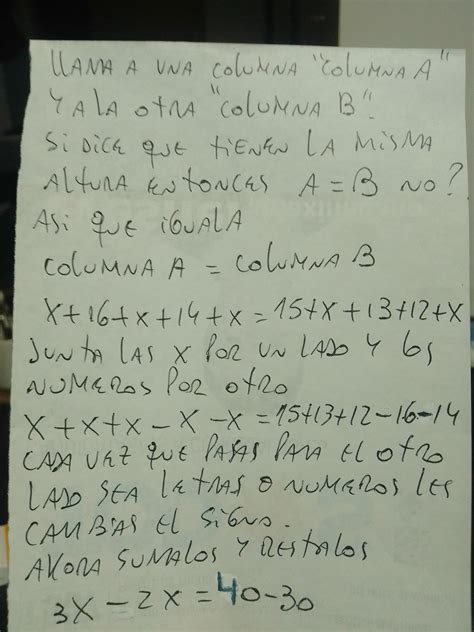 LLAMA A UNA COLUMNA "COLUMNA A"
Y A LA OTRA "COLUMNA B".
SI DICE QUE TIENEN LA MISMA
ALTURA ENTONCES A = B NO?
ASI QUE IGUALA
COLUMNA A = COLUMNA B
X+16+X+14+X = 15+X+13+12+X
JUNTA LAS X POR UN LADO Y LOS
NUMEROS POR OTRO
X+X+X-X-X = 15+13+12-16-14
CADA VEZ QUE PASAS PARA EL OTRO
LADO SEA LETRAS O NUMEROS LES
CAMBIAS EL SIGNO.
AHORA SUMALOS Y RESTALOS
3X - 2X = 40-30